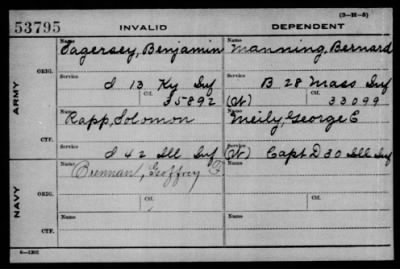 (3-H-5)
53795 INVALID DEPENDENT
Name Name
Manning, Bernard
Benjamin
ORIG. Service Service
I 13 Ky Inf B 28 Mass Inf
Ctf. Ctf.
35892 (Ct) 33099
ARMY
Name Name
Rapp, Solomon Meily, George E
CTF. Service Service
I 42 Ill Inf (Ct) Capt D 30 Ill Inf
NAVY
Name Name
Brennan, Geoffrey F
ORIG.
Name Name
CTF.
6-1202